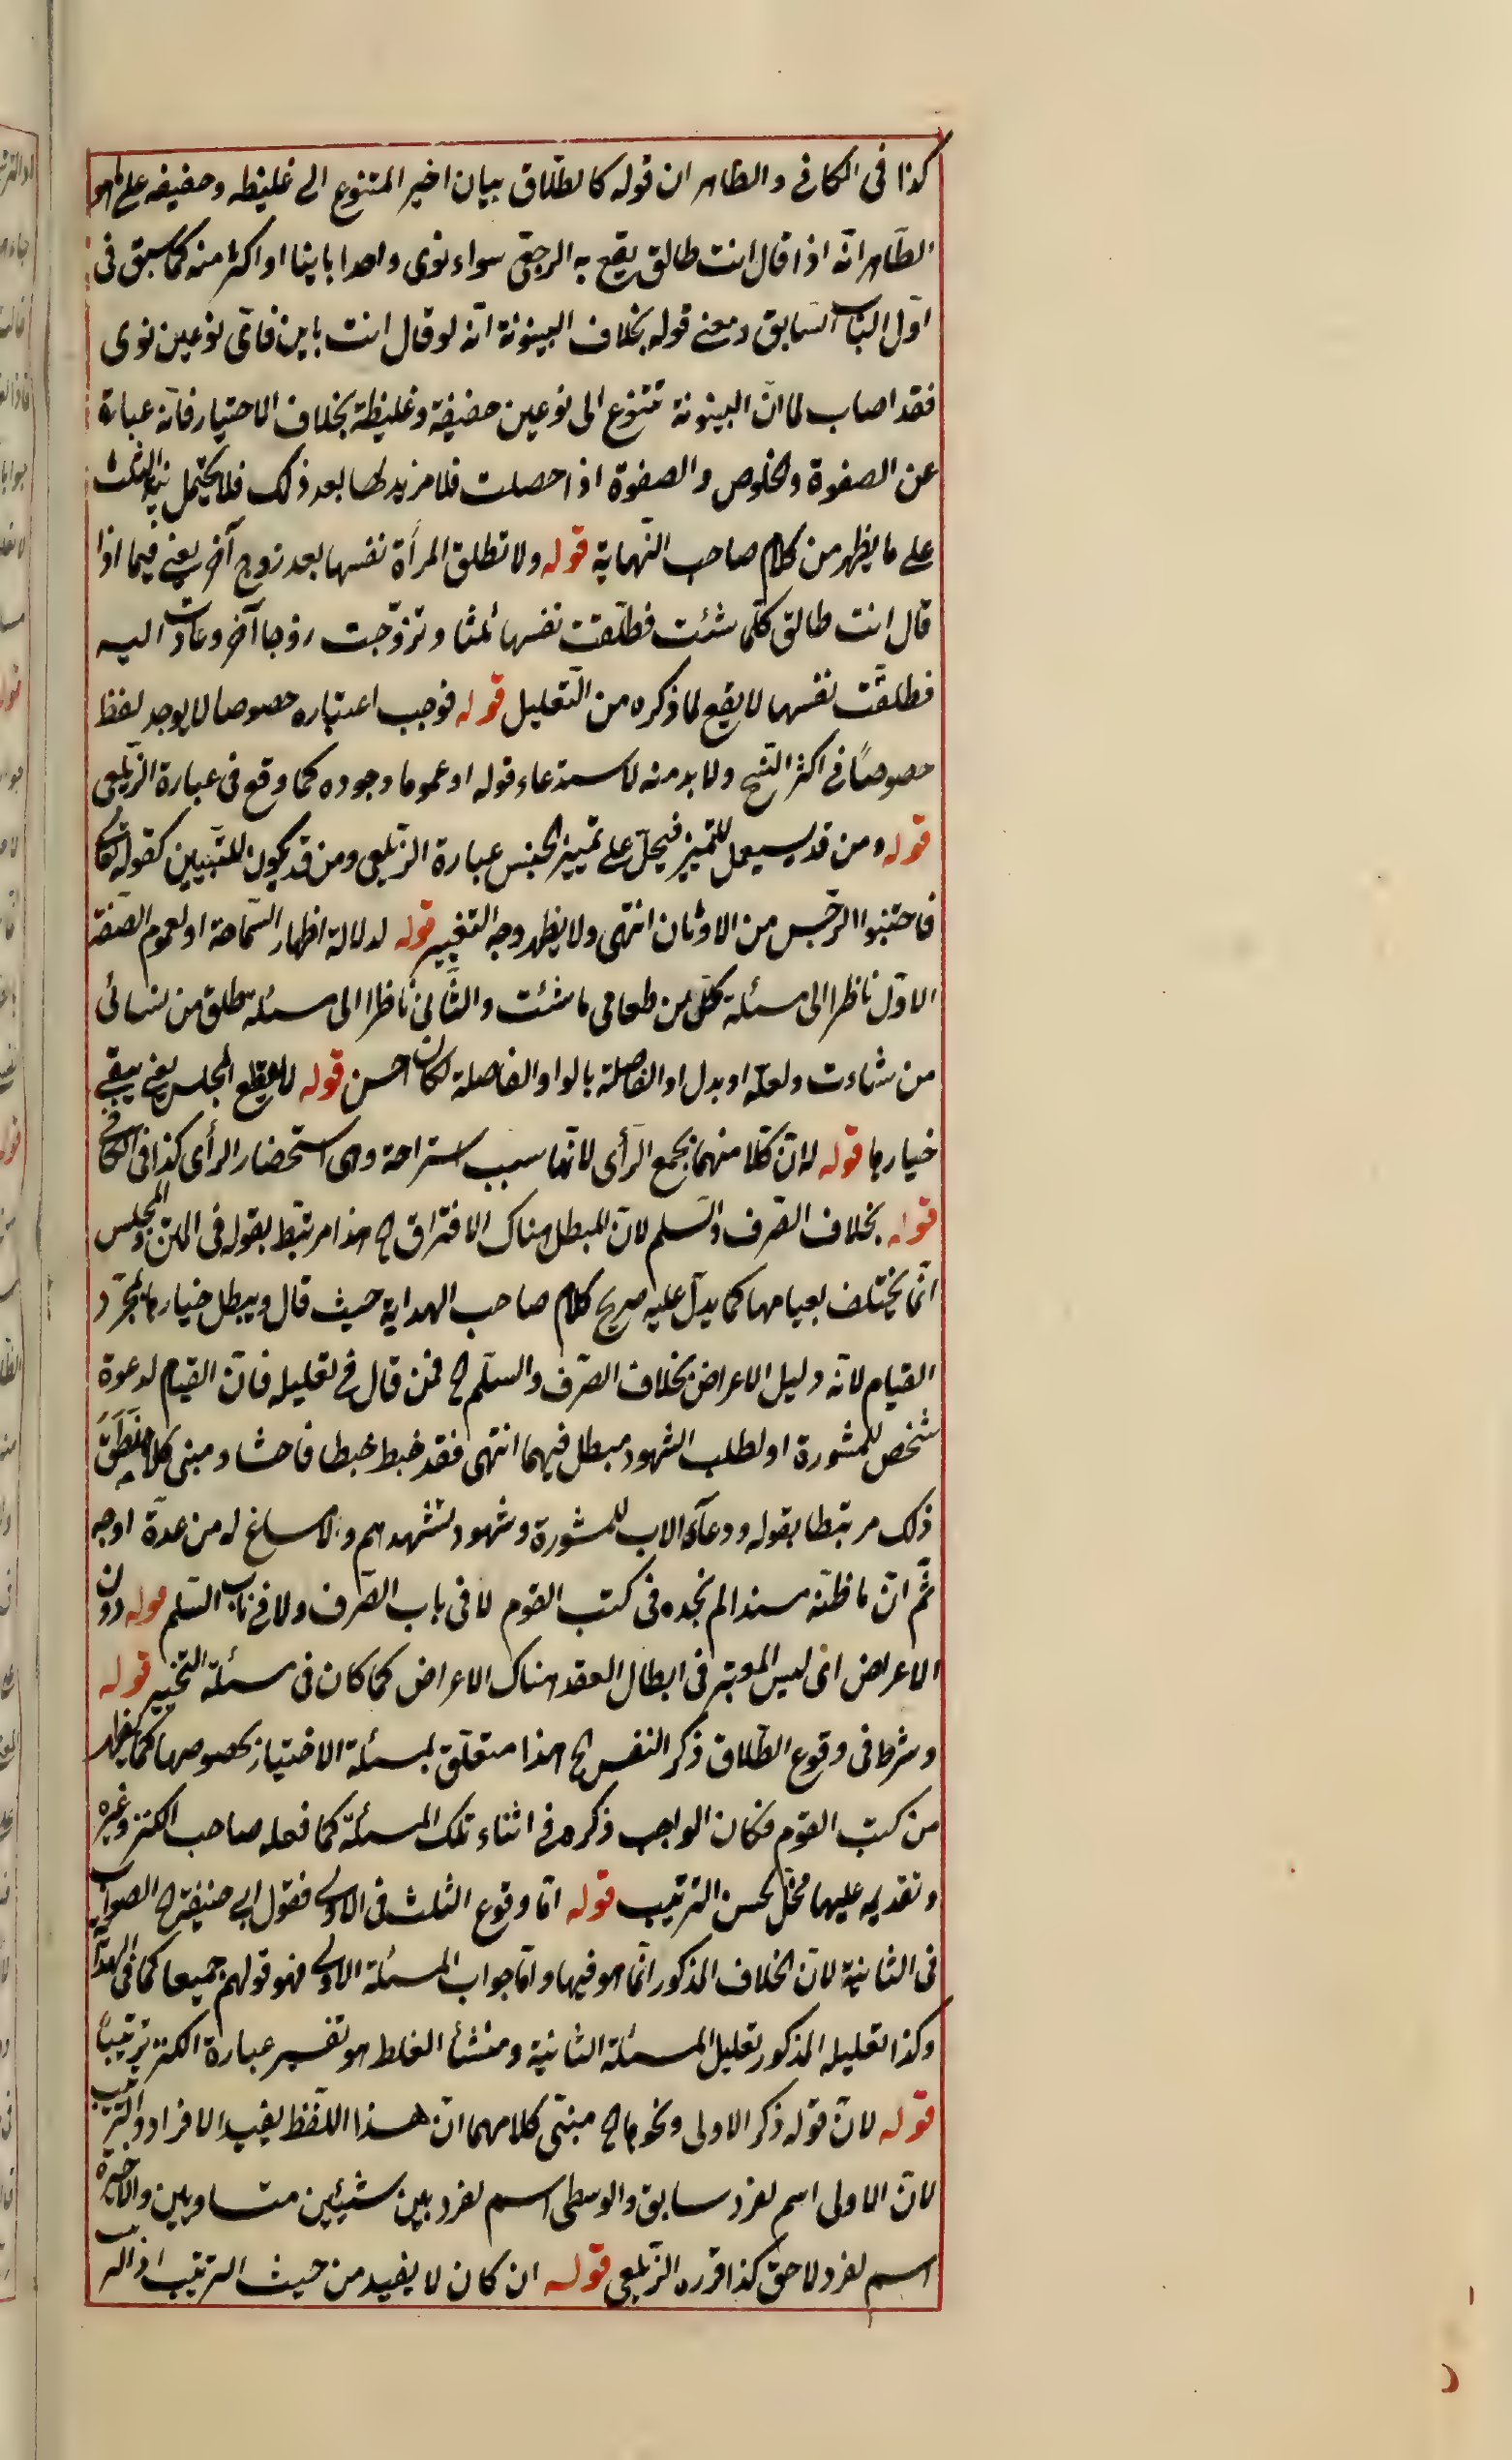 كذا فى الكافى والظاهر ان قوله كالطلاق بيان اخير المتنوع الى غليظه وخفيفه على هو
الظاهر انه اذا قال انت طالق يقع به الرجعى سواء نوى واحدا باينا او اكثر منه كما سبق فى
اول الباب السابق ومعنى قوله بخلاف البينونة انه لو قال انت باين فاى نوعين نوى
فقد اصاب لما ان البينونة تتنوع الى نوعين خفيفة وغليظة بخلاف الاختيار فانه عبارة
عن الصفوة والخلوص والصفوة اذا حصلت فلا مزيد لها بعد ذلك فلا يحتمل نية الثلث
على ما يظهر من كلام صاحب النهاية قوله ولا تطلق المرأة نفسها بعد زوج آخر يعنى فيما اذا
قال انت طالق كلما شئت فطلقت نفسها ثلثا وتزوجت زوجا آخر وعادت اليه
فطلقت نفسها لا يقع لما ذكره من التعليل قوله فوجب اعتباره خصوصا لا يوجد لفظ
خصوصاً فى اكثر النسخ ولا بد منه لاستدعاء قوله او عموما وجوده كما وقع فى عبارة الزيلعى
قوله ومن قد يستعمل للتمييز فيحل على تمييز الجنس عبارة الزيلعى ومن قد يكون للتبيين كقوله تعالى
فاجتنبوا الرجس من الاوثان انتهى ولا يظهر وجه التغيير قوله لدلالة اظهار السماحة او لعموم الصفة
الاول ناظرا الى مسئلة كل من طعامى ما شئت والثانى ناظرا الى مسئلة طلق من نسائى
من شاءت ولعله او بدل او الفاصلة بالواو الفاصلة لكان احسن قوله لا يقطع المجلس يعنى يبقى
خيارها قوله لان كلا منهما يجمع الرأى لانها سبب استراحة وهى استحضار الرأى كذا فى الكافى
قوله بخلاف الصرف والسلم لان المبطل هناك الافتراق الخ هذا مرتبط بقوله فى المتن والمجلس
انما يختلف بقيامها كما يدل عليه صريح كلام صاحب الهداية حيث قال ويبطل خيارها بمجرد
القيام لانه دليل الاعراض بخلاف الصرف والسلم الخ فمن قال فى تعليله فان القيام لدعوة
شخص للمشورة او لطلب الشهود مبطل فيهما انتهى فقد خبط خبطا فاحشا ومبنى كلامه
ذلك مرتبطا بقوله ودعاء الاب للمشورة وشهود تشهدهم ولا مساغ له من عدة اوجه
ثم ان ما ظنه سندا لم نجده فى كتب القوم لا فى باب الصرف ولا فى باب السلم قوله دون
الاعراض اى ليس المعتبر فى ابطال العقد هناك الاعراض كما كان فى مسئلة التخيير قوله
وشرط فى وقوع الطلاق ذكر النفس الخ هذا متعلق بمسئلة الاختيار بخصوصها كما يظهر
من كتب القوم فكان الواجب ذكره فى اثناء تلك المسئلة كما فعله صاحب الكنز وغيره
وتقديمه عليها مخل بحسن الترتيب قوله اما وقوع الثلث فى الاولى فقول ابى حنيفة الخ الصواب
فى الثانية لان الخلاف المذكور انما هو فيها واما جواب المسئلة الاولى فهو قولهم جميعا كما فى الهداية
وكذا تعليله المذكور تعليل المسئلة الثانية ومنشأ الغلط هو تفسير عبارة الكنز ترتيباً
قوله لان قوله ذكر الاولى ونحوها الخ مبنى كلامهما ان هذا اللفظ يفيد الافراد والترتيب
لان الاولى اسم لفرد سابق والوسطى اسم لفرد بين شيئين متساويين والاخيرة
اسم لفرد لاحق كذا قرره الزيلعى قوله ان كان لا يفيد من حيث الترتيب اذ